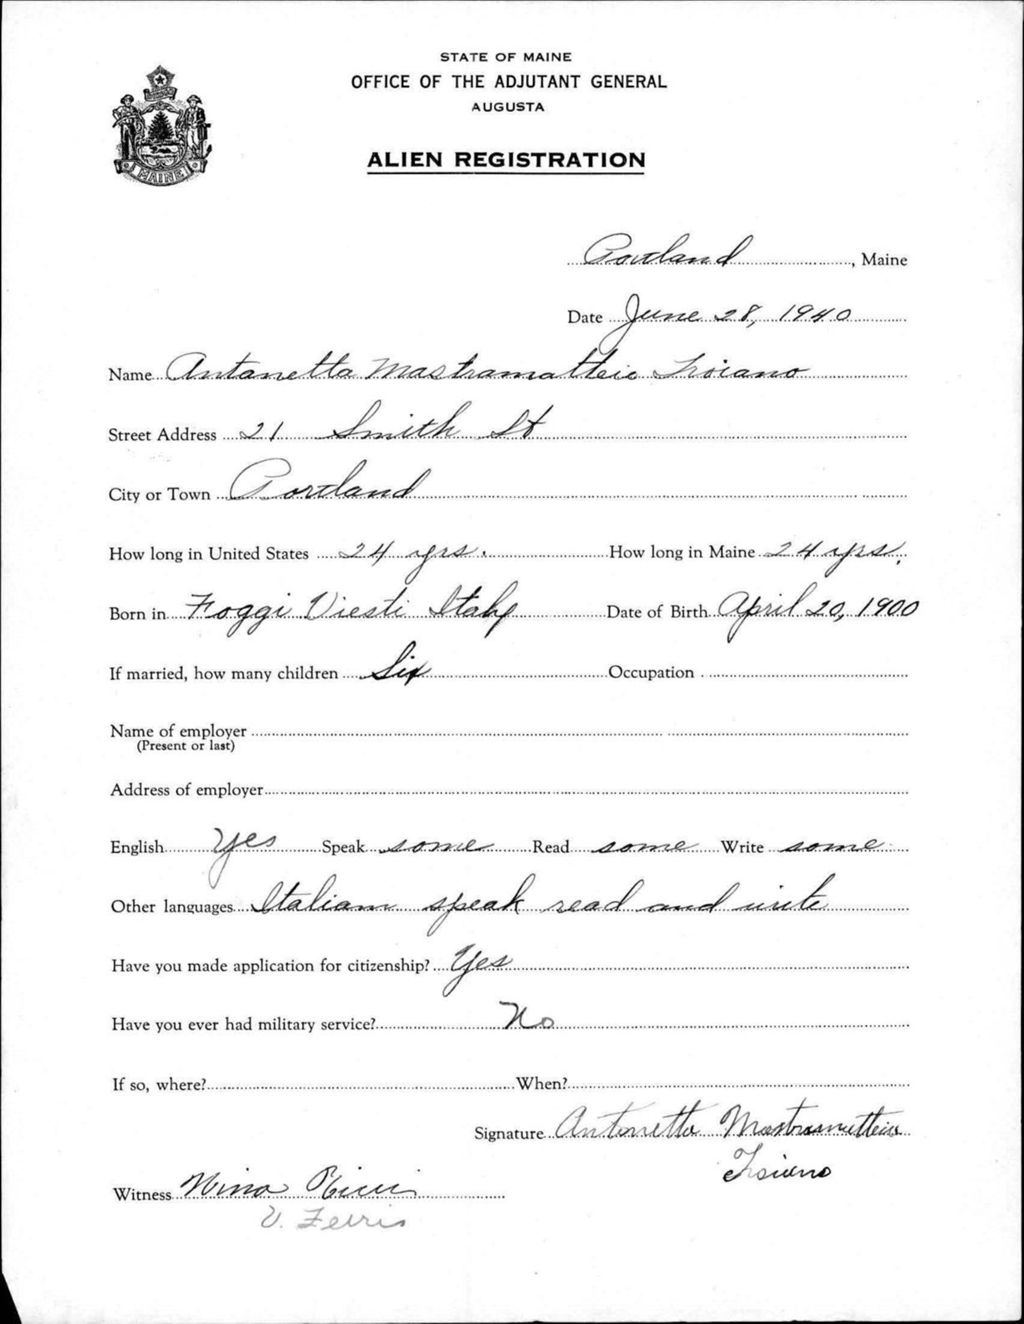 STATE OF MAINE
OFFICE OF THE ADJUTANT GENERAL
AUGUSTA
ALIEN REGISTRATION
MAINE
Portland, Maine
Date June 28, 1940
Name Antanetta Mastramatteie Troiano
Street Address 21 Smith St
City or Town Portland
How long in United States 24 yrs. How long in Maine 24 yrs.
Born in Foggi Viesti Italy Date of Birth April 20, 1900
If married, how many children Six Occupation
Name of employer
(Present or last)
Address of employer
English Yes Speak some Read some Write some
Other languages Italian speak read and write
Have you made application for citizenship? Yes
Have you ever had military service? No
If so, where? When?
Signature Antonetta
Troiano
Witness Nina Ricci
V. Ferris